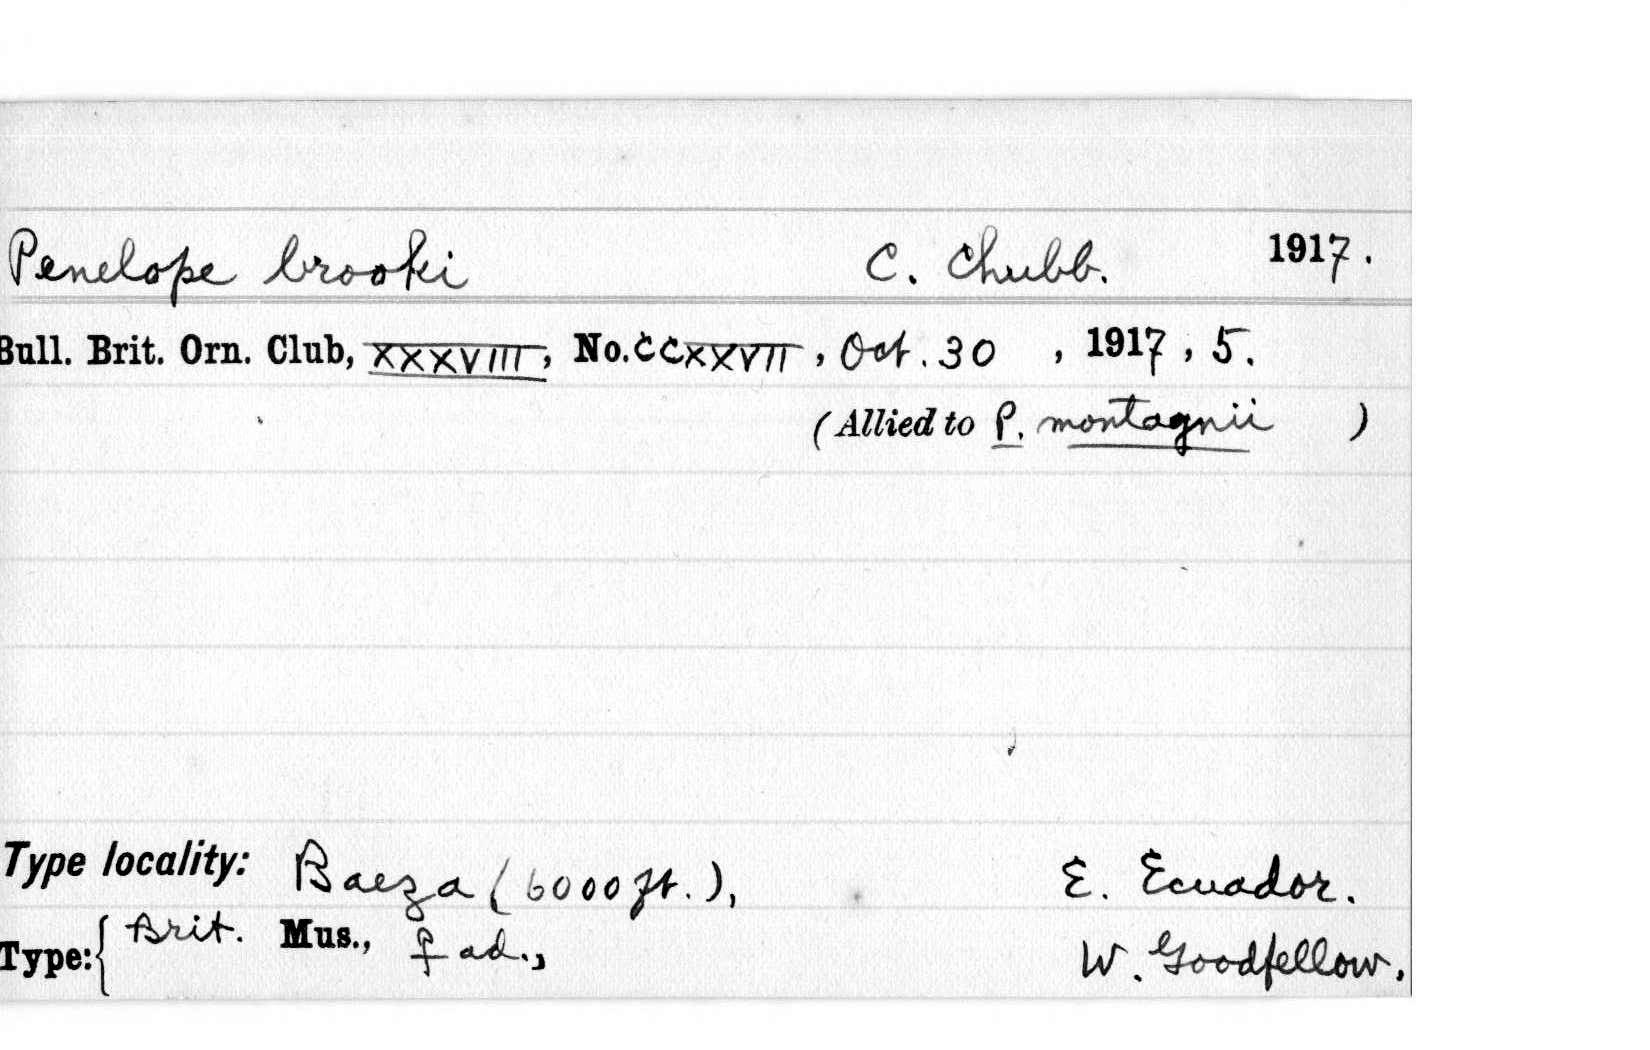 Penelope brooki C. Chubb. 1917.
Bull. Brit. Orn. Club, XXXVIII, No. CCXXVII, Oct. 30, 1917, 5.
(Allied to P. montagnii)
Type locality: Baeza (6000 ft.), E. Ecuador.
Type: { Brit. Mus., ♀ ad., W. Goodfellow.